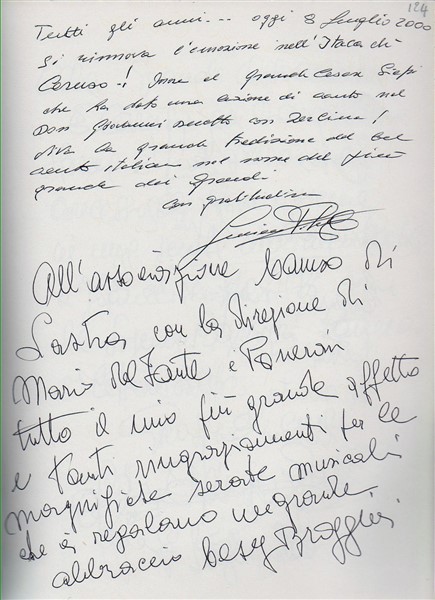 124
Tutti gli anni... oggi 8 Luglio 2000
si rinnova l'emozione nell'Itaca di
Caruso-! il grande Cesare Siepi
che ha dato una lezione di canto nel
Don Giovanni duetto con Zerlina!
Viva la grande tradizione del bel
canto italiano nel nome del più
grande dei grandi
con gratitudine
All'associazione Caruso di
Lastra con la direzione di
Mario Del Fante e
tutto il mio più grande affetto
e tanti ringraziamenti per le
magnifiche serate musicali
che ci regalano un grande
abbraccio